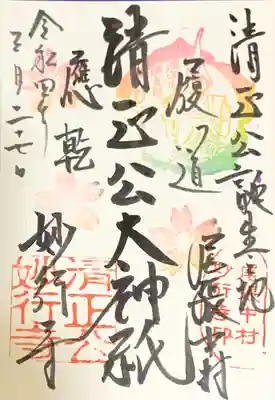 清正公誕生地
尾張中村
履道
清正公大神祇
應乾
妙行寺
令和四年
三月二十七日
清正公
妙行寺